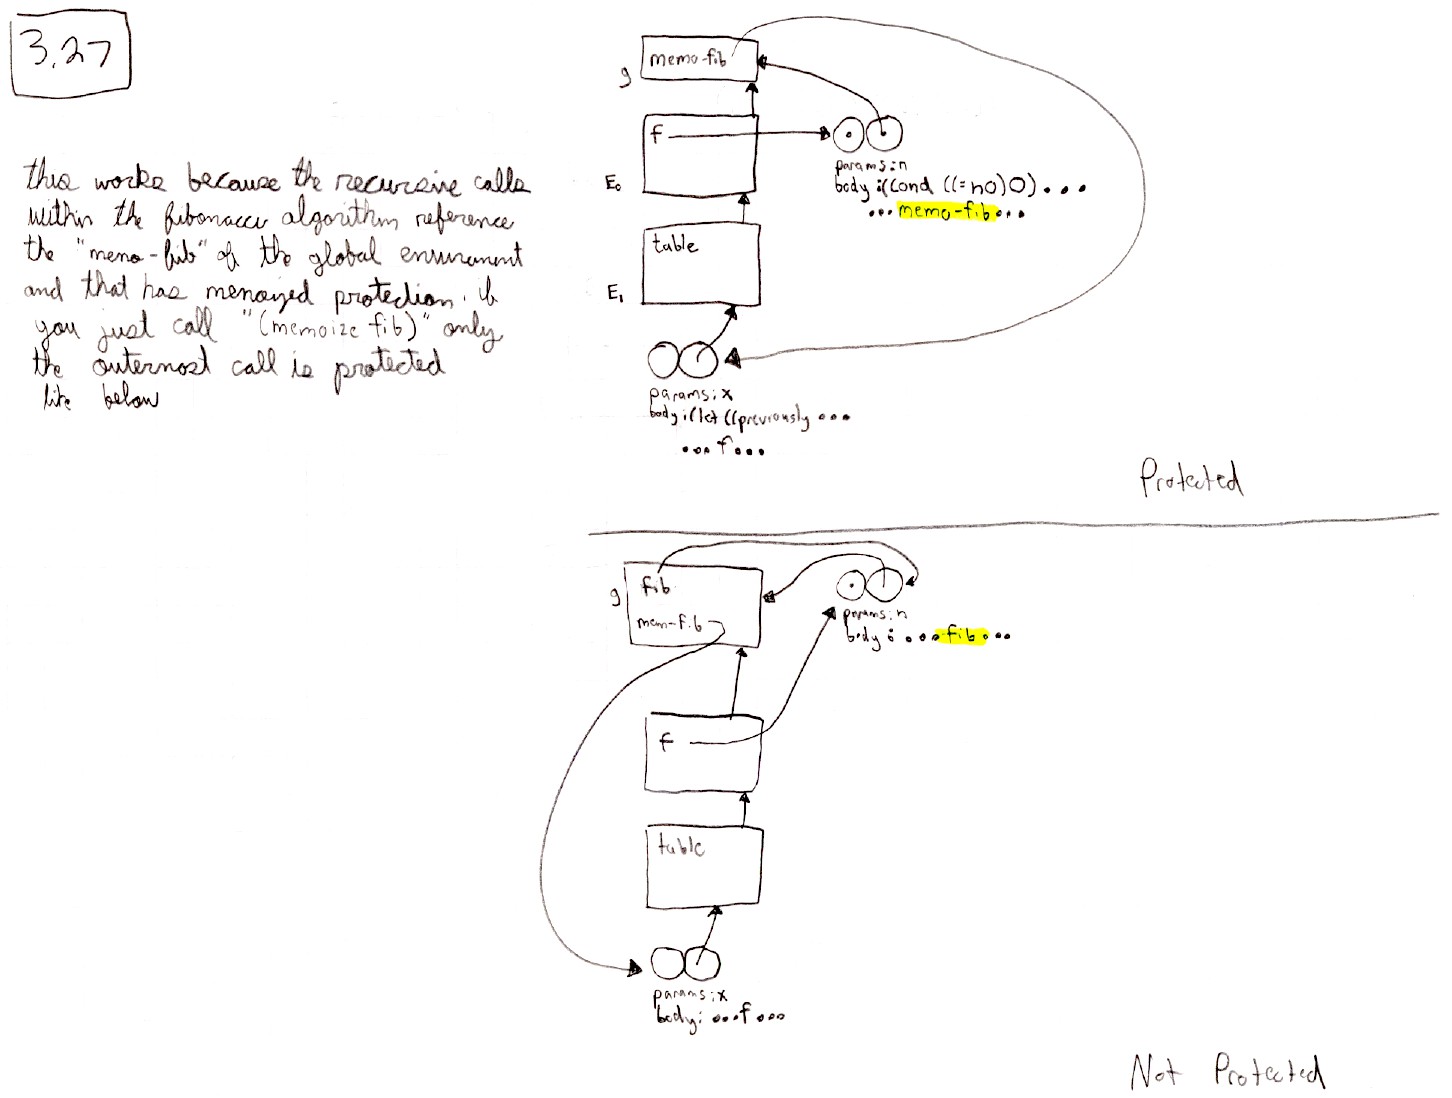 3.27
this works because the recursive calls
within the fibonacci algorithm reference
the "memo-fib" of the global environment
and that has memoized protection. if
you just call "(memoize fib)" only
the outermost call is protected
like below
g
memo-fib
E0
f
params: n
body: (cond ((= n 0) 0) ...
... memo-fib ...
E1
table
params: x
body: (let ((previously ...
... f ...
Protected
g
fib
mem-fib
params: n
body: ... fib ...
f
table
params: x
body: ... f ...
Not Protected